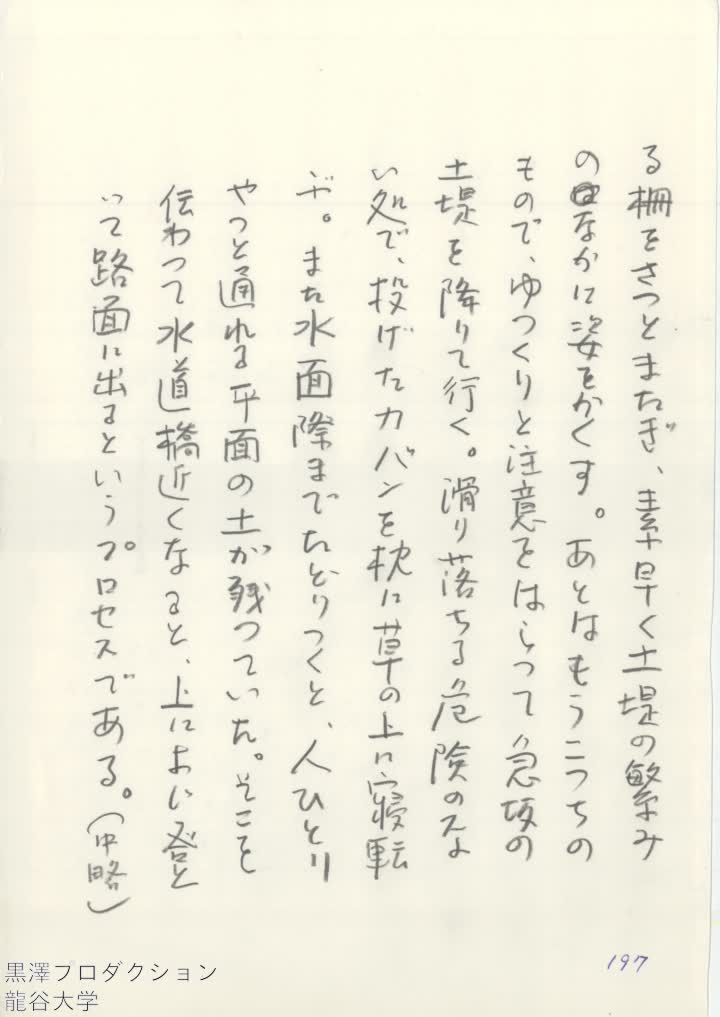 る柵をさつとまたぎ、素早く土堤の繁み
のなかに姿をかくす。あとはもうこつちの
もので、ゆつくりと注意をはらつて急坂の
土堤を降りて行く。滑り落ちる危険のな
い処で、投げたカバンを枕に草の上に寝転
ぶ。また水面際までたどりつくと、人ひとり
やつと通れる平面の土が残つていた。そこを
伝わつて水道橋近くなると、上によぢ登と
いて路面に出るというプロセスである。(中略)
197
黒澤フロダクション
龍谷大学